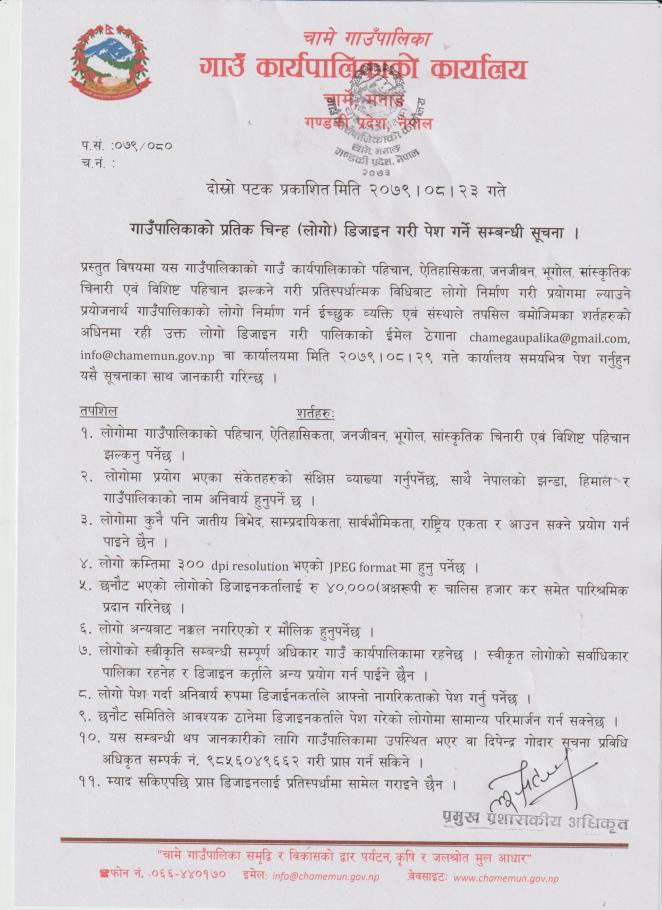 चामे गाउँपालिका
गाउँ कार्यपालिकाको कार्यालय
चामे, मनाङ
गण्डकी प्रदेश, नेपाल
गाउँ कार्यपालिकाको कार्यालय
चामे, मनाङ
गण्डकी प्रदेश, नेपाल
२०७३
प.सं. :०७९/०८०
च.नं. :
दोस्रो पटक प्रकाशित मिति २०७९।०८।२३ गते
गाउँपालिकाको प्रतिक चिन्ह (लोगो) डिजाइन गरी पेश गर्ने सम्बन्धी सूचना ।
प्रस्तुत विषयमा यस गाउँपालिकाको गाउँ कार्यपालिकाको पहिचान, ऐतिहासिकता, जनजीवन, भूगोल, सांस्कृतिक
चिनारी एवं विशिष्ट पहिचान झल्कने गरी प्रतिस्पर्धात्मक विधिबाट लोगो निर्माण गरी प्रयोगमा ल्याउने
प्रयोजनार्थ गाउँपालिकाको लोगो निर्माण गर्न ईच्छुक व्यक्ति एवं संस्थाले तपसिल बमोजिमका शर्तहरुको
अधिनमा रही उक्त लोगो डिजाइन गरी पालिकाको ईमेल ठेगाना chamegaupalika@gmail.com,
info@chamemun.gov.np वा कार्यालयमा मिति २०७९।०८।२९ गते कार्यालय समयभित्र पेश गर्नुहुन
यसै सूचनाका साथ जानकारी गरिन्छ ।
तपशिल शर्तहरुः
१. लोगोमा गाउँपालिकाको पहिचान, ऐतिहासिकता, जनजीवन, भूगोल, सांस्कृतिक चिनारी एवं विशिष्ट पहिचान
झल्कनु पर्नेछ ।
२. लोगोमा प्रयोग भएका संकेतहरुको संक्षिप्त व्याख्या गर्नुपर्नेछ, साथै नेपालको झन्डा, हिमाल र
गाउँपालिकाको नाम अनिवार्य हुनुपर्ने छ ।
३. लोगोमा कुनै पनि जातीय विभेद, साम्प्रदायिकता, सार्वभौमिकता, राष्ट्रिय एकता र आउन सक्ने प्रयोग गर्न
पाइने छैन ।
४. लोगो कम्तिमा ३०० dpi resolution भएको JPEG format मा हुनु पर्नेछ ।
५. छनौट भएको लोगोको डिजाइनकर्तालाई रु ४०,०००(अक्षरूपी रु चालिस हजार कर समेत पारिश्रमिक
प्रदान गरिनेछ ।
६. लोगो अन्यबाट नक्कल नगरिएको र मौलिक हुनुपर्नेछ ।
७. लोगोको स्वीकृति सम्बन्धी सम्पूर्ण अधिकार गाउँ कार्यपालिकामा रहनेछ । स्वीकृत लोगोको सर्वाधिकार
पालिका रहनेह र डिजाइन कर्ताले अन्य प्रयोग गर्न पाईने छैन ।
८. लोगो पेश गर्दा अनिवार्य रुपमा डिजाईनकर्ताले आफ्नो नागरिकताको पेश गर्नु पर्नेछ ।
९. छनौट समितिले आवश्यक ठानेमा डिजाइनकर्ताले पेश गरेको लोगोमा सामान्य परिमार्जन गर्न सक्नेछ ।
१०. यस सम्बन्धी थप जानकारीको लागि गाउँपालिकामा उपस्थित भएर वा दिपेन्द्र गोदार सूचना प्रविधि
अधिकृत सम्पर्क नं. ९८५६०४९६६२ गरी प्राप्त गर्न सकिने ।
११. म्याद सकिएपछि प्राप्त डिजाइनलाई प्रतिस्पर्धामा सामेल गराइने छैन ।
प्रमुख प्रशासकीय अधिकृत
"चामे गाउँपालिका समृद्वि र विकासको द्वार पर्यटन, कृषि र जलश्रोत मुल आधार"
☎फोन नं. ०६६-४४०१७० इमेल: info@chamemun.gov.np वेवसाइटः www.chamemun.gov.np